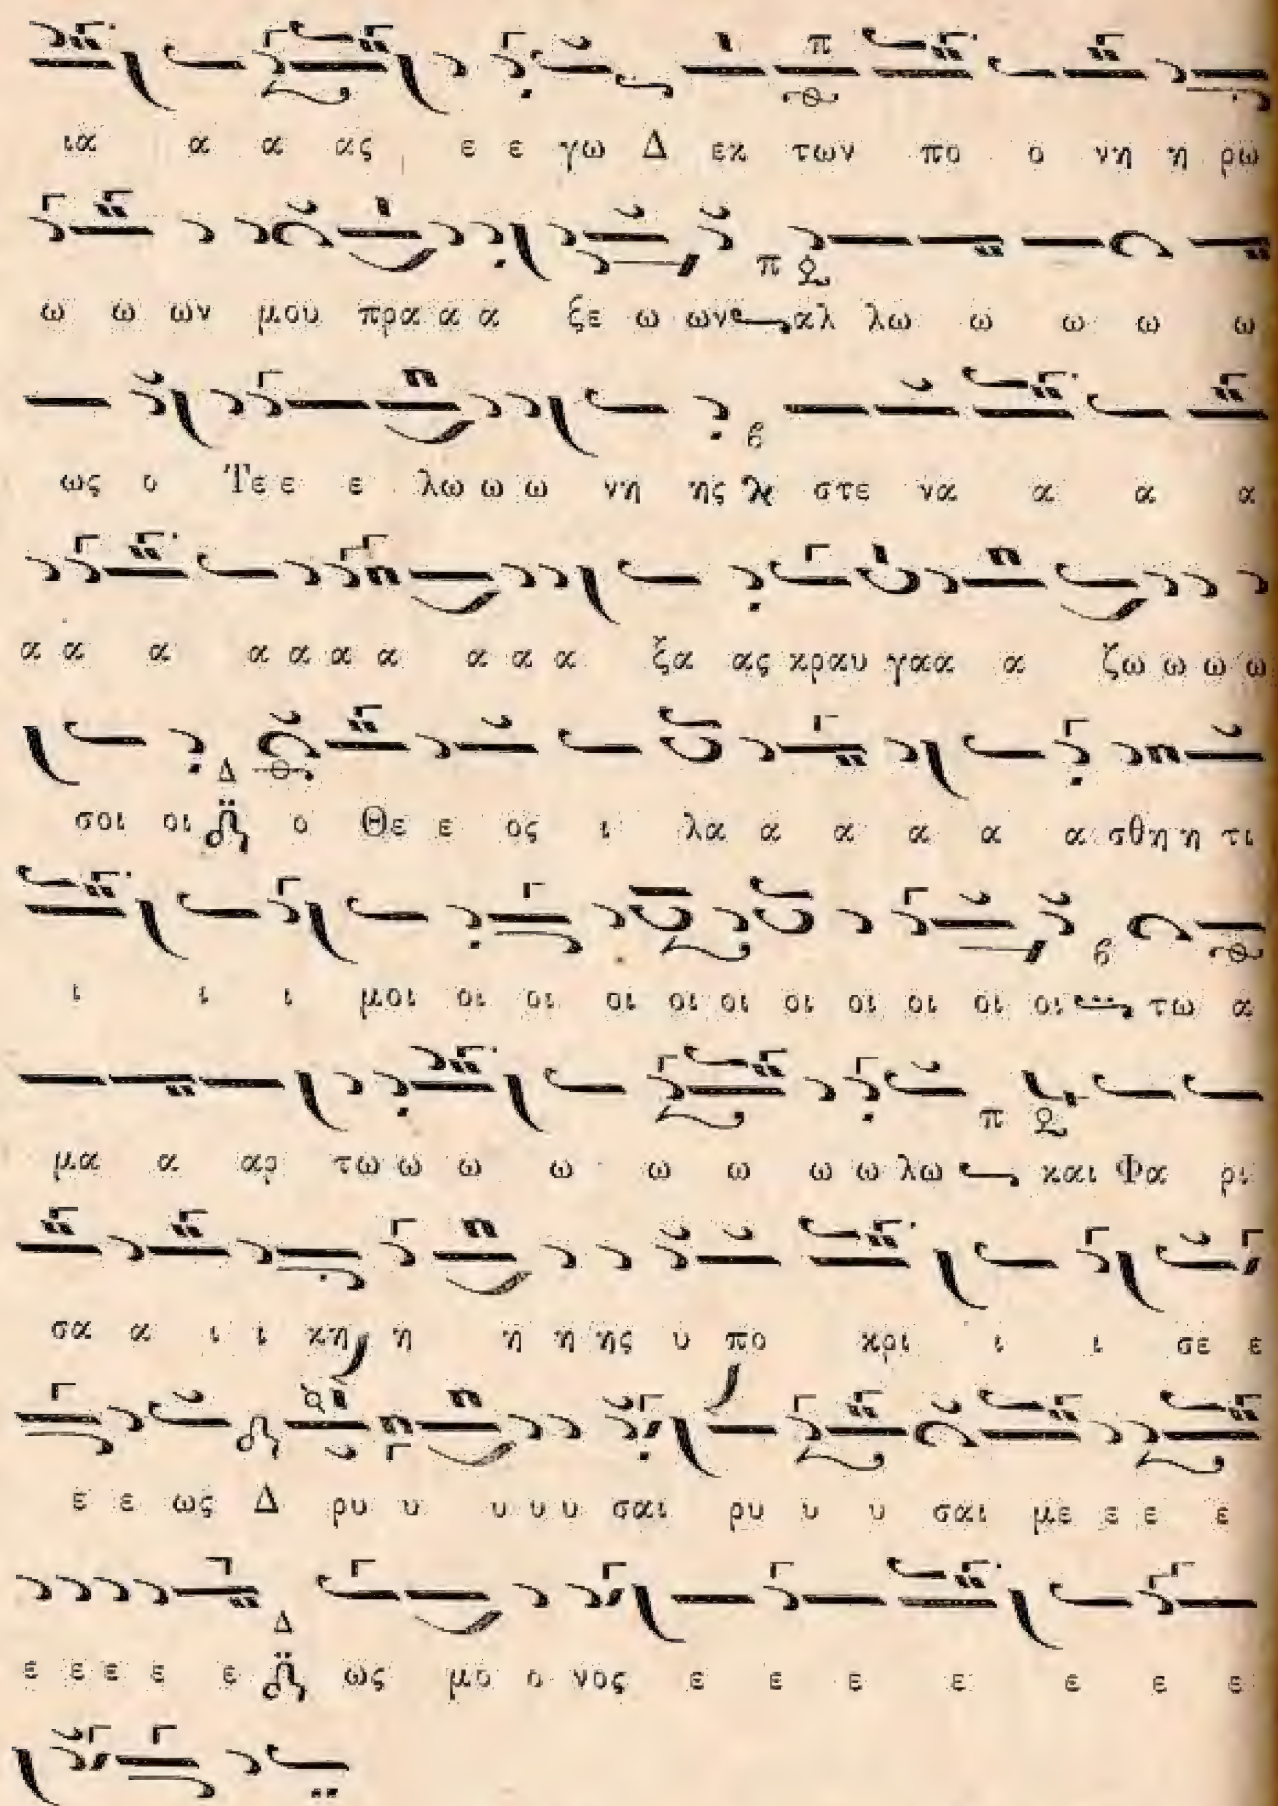 ια α α ας ε ε γω Δ εκ των πο ο νη η ρω
ω ω ων μου πρα α α ξε ω ων αλ λω ω ω ω ω
ως ο Τε ε ε λω ω ω νη ης στε να α α α
α α α α α α α α α α ξα ας κραυ γαα α ζω ω ω ω
σοι οι ο Θε ε ος ι λα α α α α α σθη η τι
ι ι ι μοι οι οι οι οι οι οι οι οι οι οι τω α
μα α αρ τω ω ω ω ω ω ω ω λω και Φα ρι
σα α ι ι κη η η η ης υ πο κρι ι ι σε ε
ε ε ως Δ ρυ υ υ υ υ σαι ρυ υ υ σαι με ε ε ε
ε ε ε ε ε ως μο ο νος ε ε ε ε ε ε ε